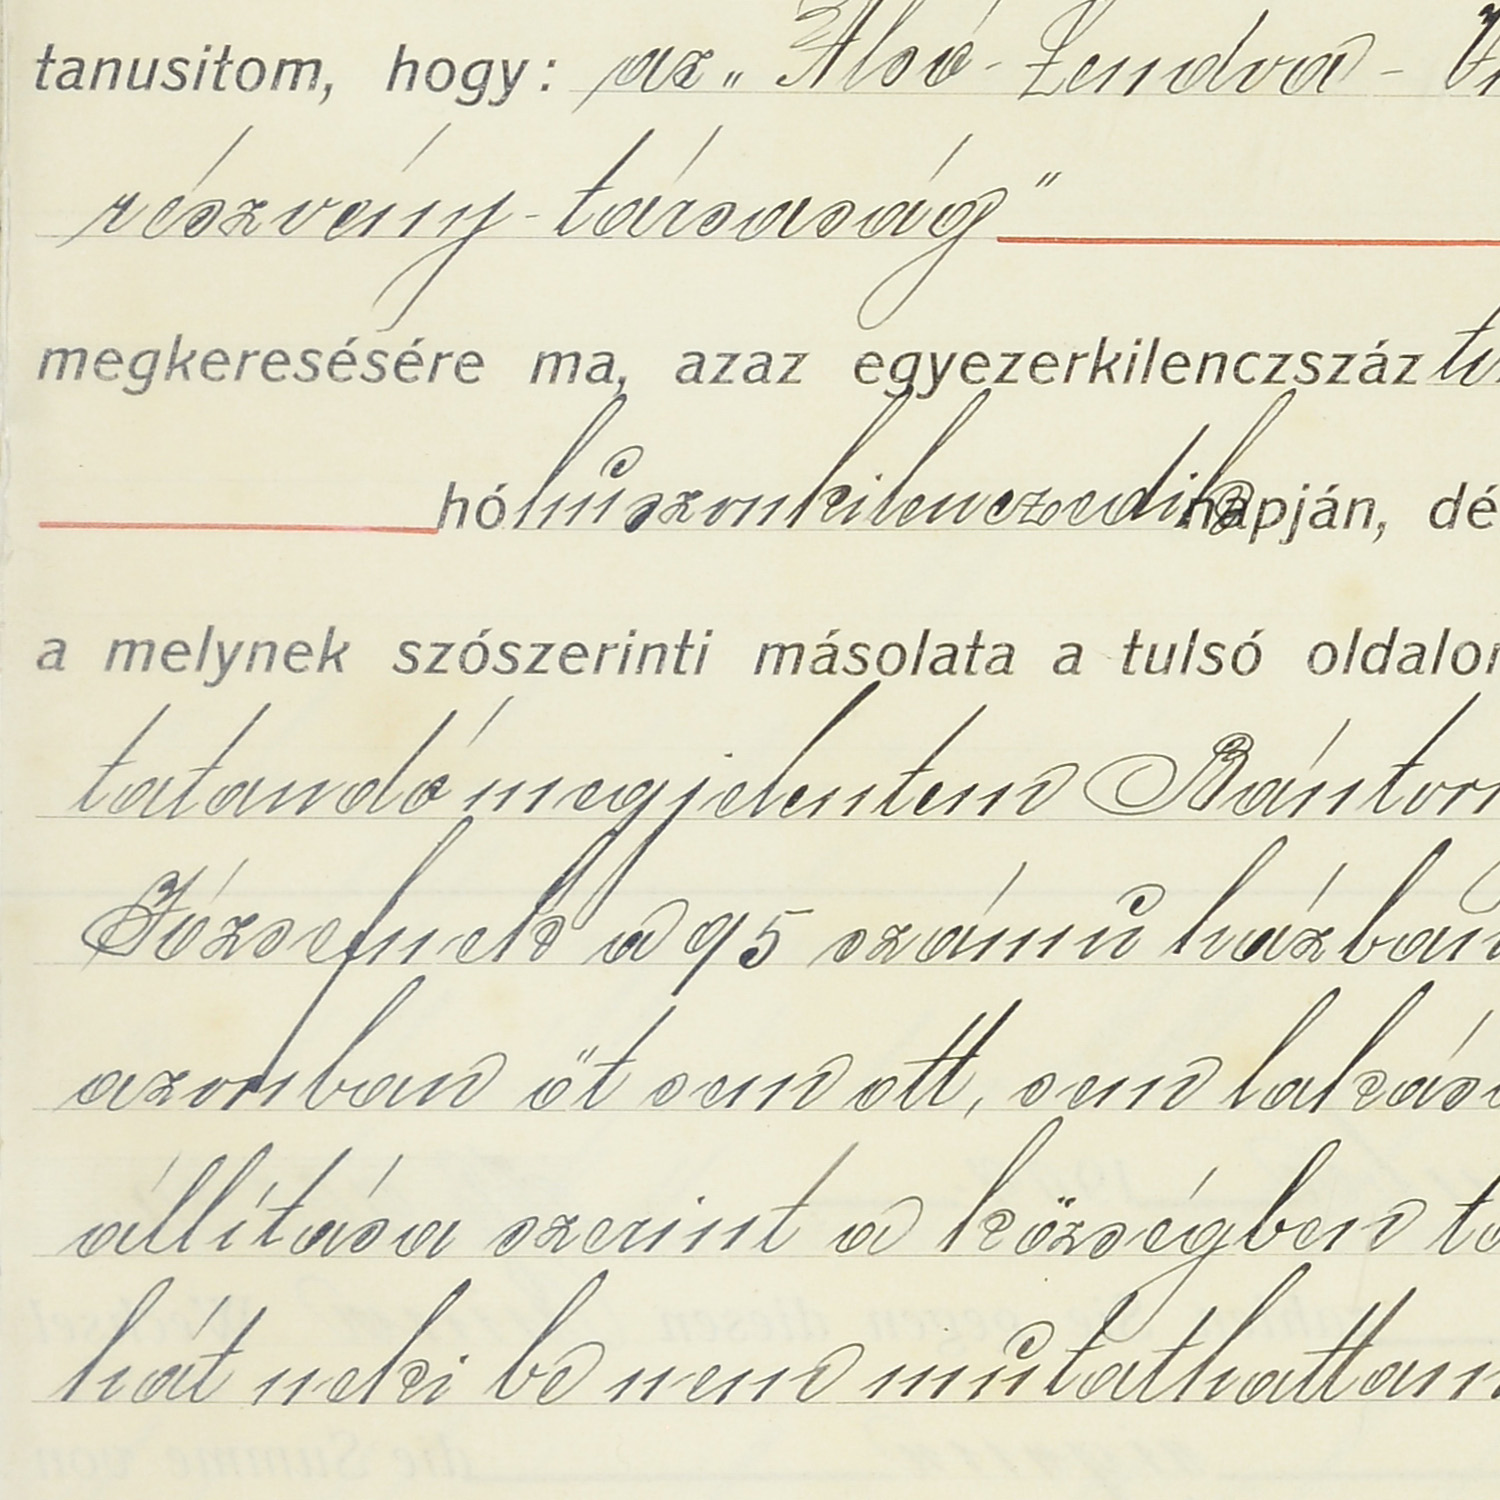 tanusitom, hogy: az „Alsó-Lendva-
részvény-társaság”
megkeresésére ma, azaz egyezerkilenczszáz
hó huszonkilenczedik napján, dé
a melynek szószerinti másolata a tulsó oldalon
tatandó megjelentem Bántorn
Józsefnek a 95 számu házban
azonban őt sem ott, sem lakásá
állítása szerint a községben
hát neki be nem mutathattam